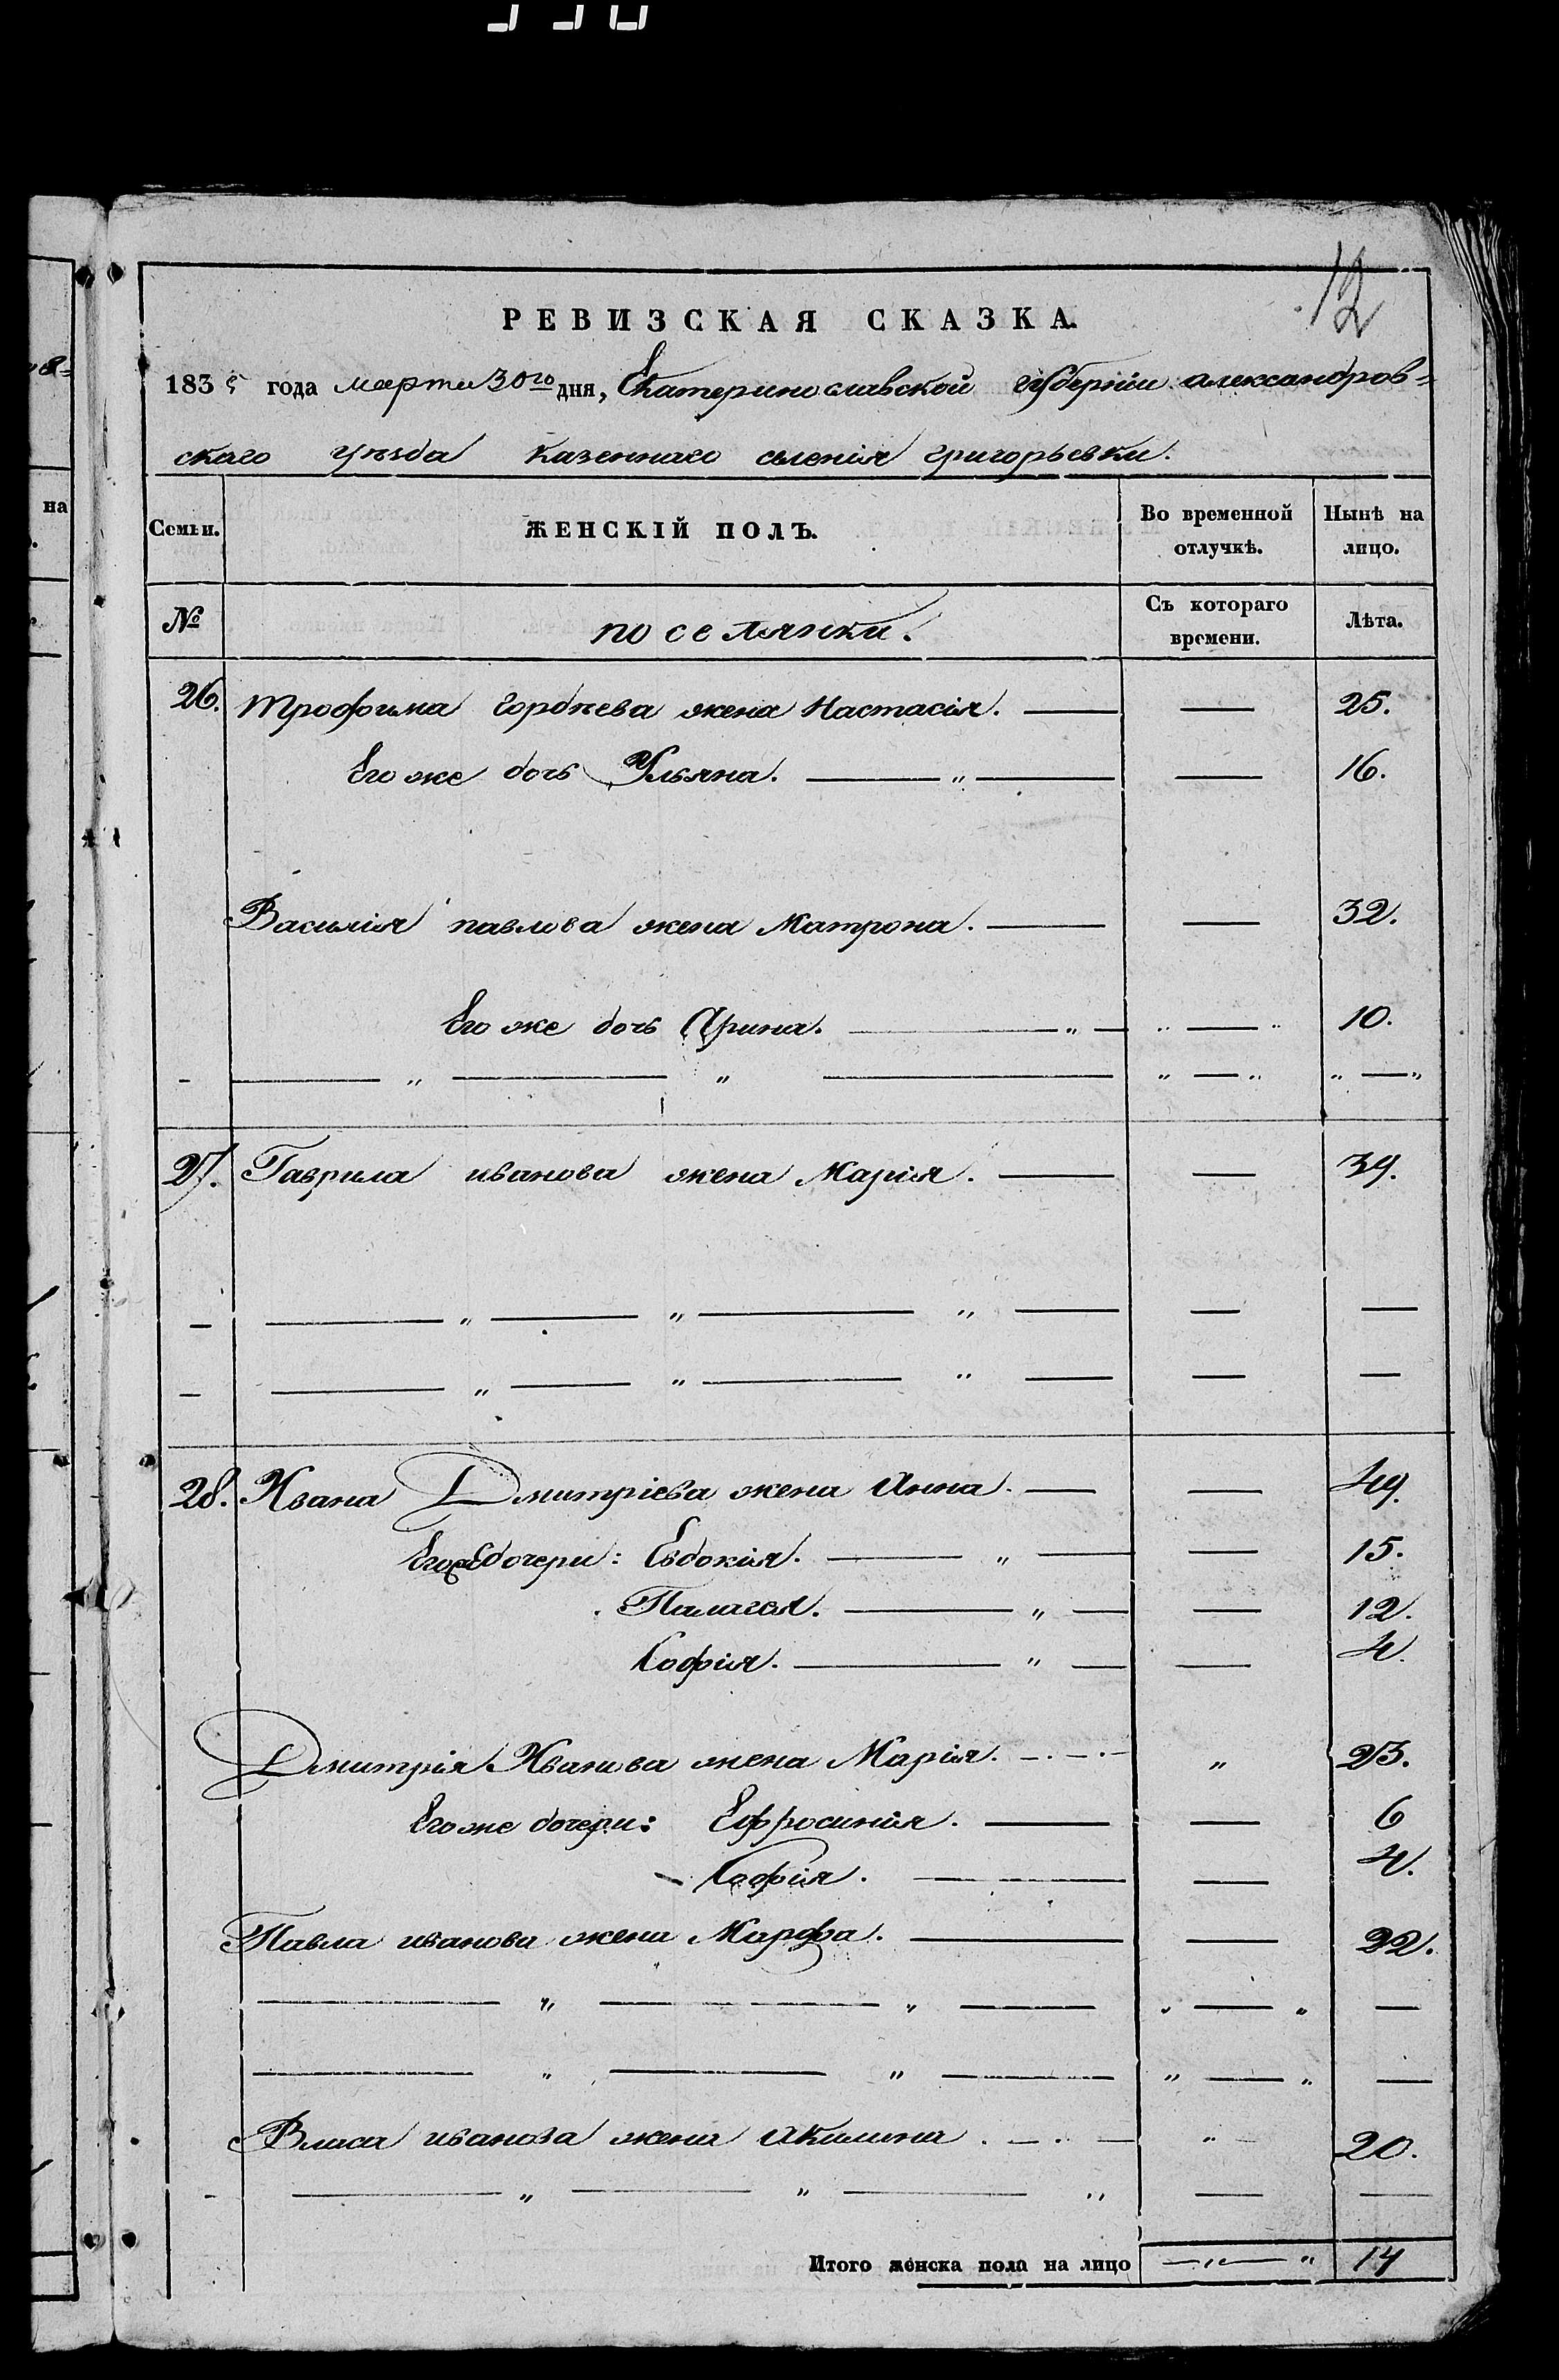 12
РЕВИЗСКАЯ СКАЗКА.
1835 года марта 30го дня, Екатеринославской губерніи александров=
скаго уѣзда казеннаго селенія григорьевки.
Семьи. ЖЕНСКІЙ ПОЛЪ. Во временной отлучкѣ. Нынѣ на лицо.
№ поселянки. Съ котораго времени. Лѣта.
26. Трофима Гордѣева жена Настасія. — — 25.
Его же дочь Ульяна. — „ — — 16.
Василія павлова жена Матрона. — — 32.
Его же дочь Арина. — „ — „ — „ 10.
- — „ — „ — „ — „ „ — „
27. Гаврила иванова жена Марія. — — 39.
- — „ — „ — „ — — —
- — „ — „ — „ — — —
28. Ивана Дмитріева жена Анна. — — 49.
Его дочери: Евдокія. — „ — — 15.
Палагея. — „ — — 12.
Софія. — „ — — 4.
Дмитрія Иванова жена Марія. — . — . — „ 23.
Его же дочери: Ефросинія. — — 6
Софія. — — 4.
Павла иванова жена Марфа. — — 22.
— „ — „ — „ — „ —
— „ — „ — „ — „ —
Власа иванова жена Акилина . — . — „ — 20.
- — „ — „ — „ — —
Итого женска пола на лицо — „ — „ 14
на